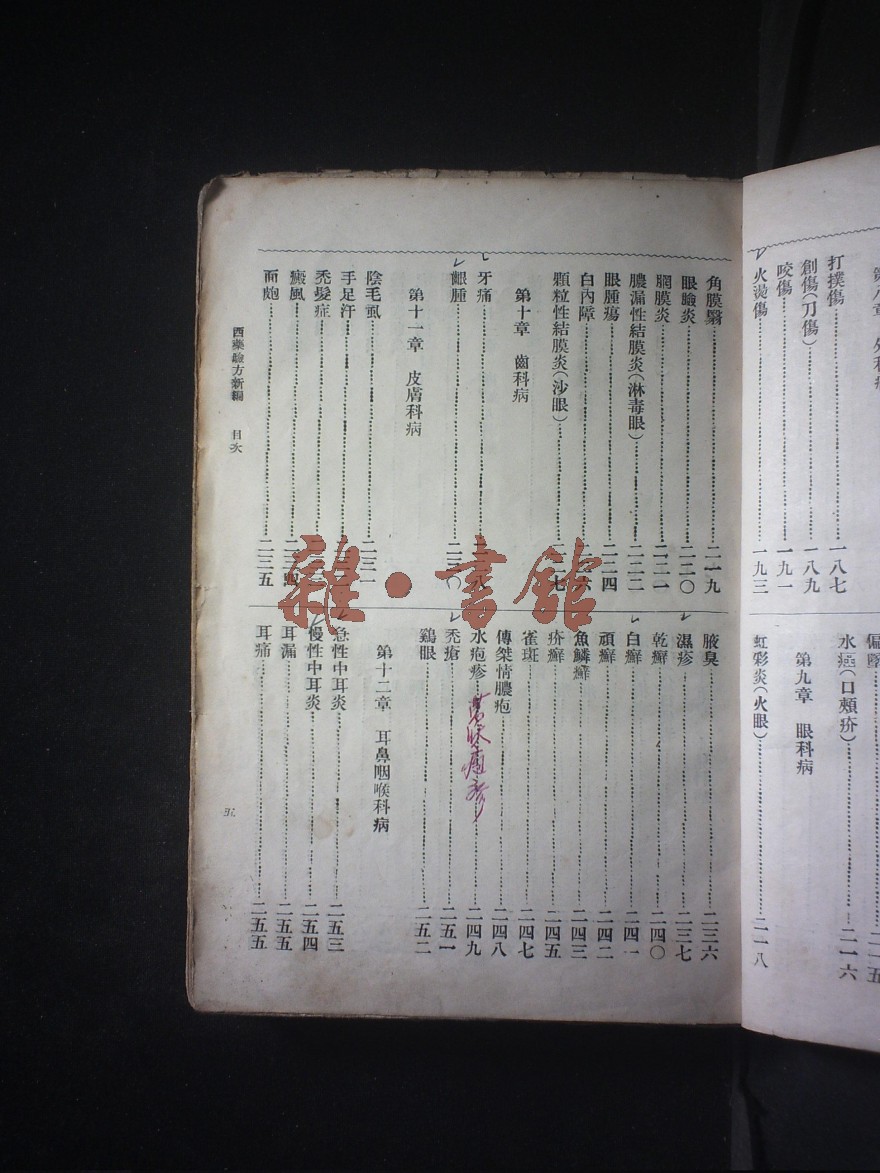 打撲傷 一八七
創傷(刀傷) 一八九
咬傷 一九一
火燙傷 一九三
水癌(口頰疥) 二一六
第九章 眼科病
虹彩炎(火眼) 二一八
角膜翳 二一九
眼瞼炎 二二〇
網膜炎 二二一
膿漏性結膜炎(淋毒眼) 二二二
眼腫瘍 二二四
白內障
顆粒性結膜炎(沙眼)
第十章 齒科病
牙痛
齦腫 二三〇
第十一章 皮膚科病
陰毛虱 二三一
手足汗
禿髮症
癜風
面皰 二三五
腋臭 二三六
濕疹 二三七
乾癬 二四〇
白癬 二四一
頑癬 二四二
魚鱗癬 二四三
疥癬 二四五
雀斑 二四七
傳桀情膿疱 二四八
水疱疹 二四九
禿瘡 二五一
鷄眼 二五二
第十二章 耳鼻咽喉科病
急性中耳炎 二五三
慢性中耳炎 二五四
耳漏 二五五
耳痛 二五五
西藥驗方新編 目次
五
雜·書館